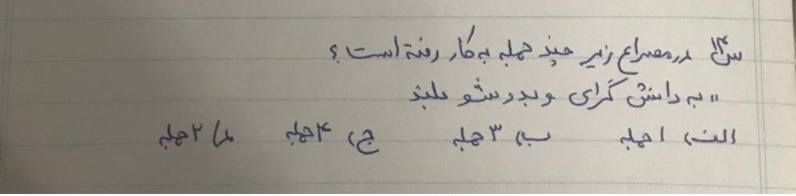 س۱۴ در مصراع زیر چند جمله به کار رفته است؟
"به دانش گرای و بدو شو بلند
الف) ۱ جمله ب) ۳ جمله ج) ۴ جمله د) ۲ جمله